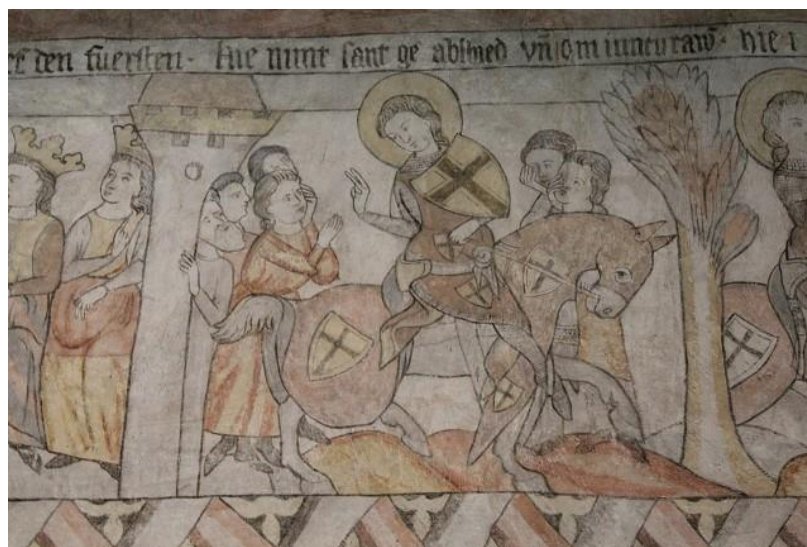 den fuersten · hie nimt sant ge abschied vn̄ iuncuraw · hie